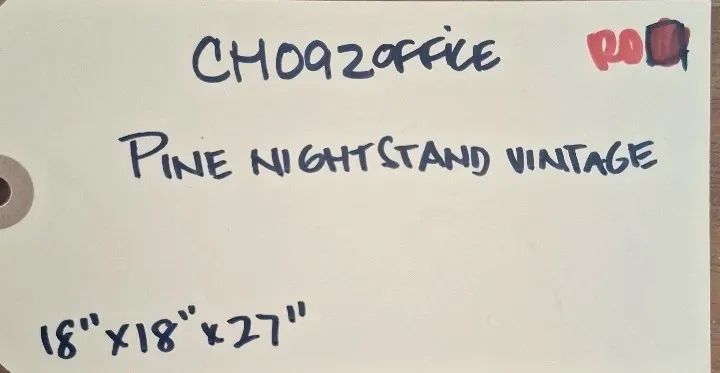 CH092OFFICE
RO
PINE NIGHTSTAND VINTAGE
18"x18"x27"